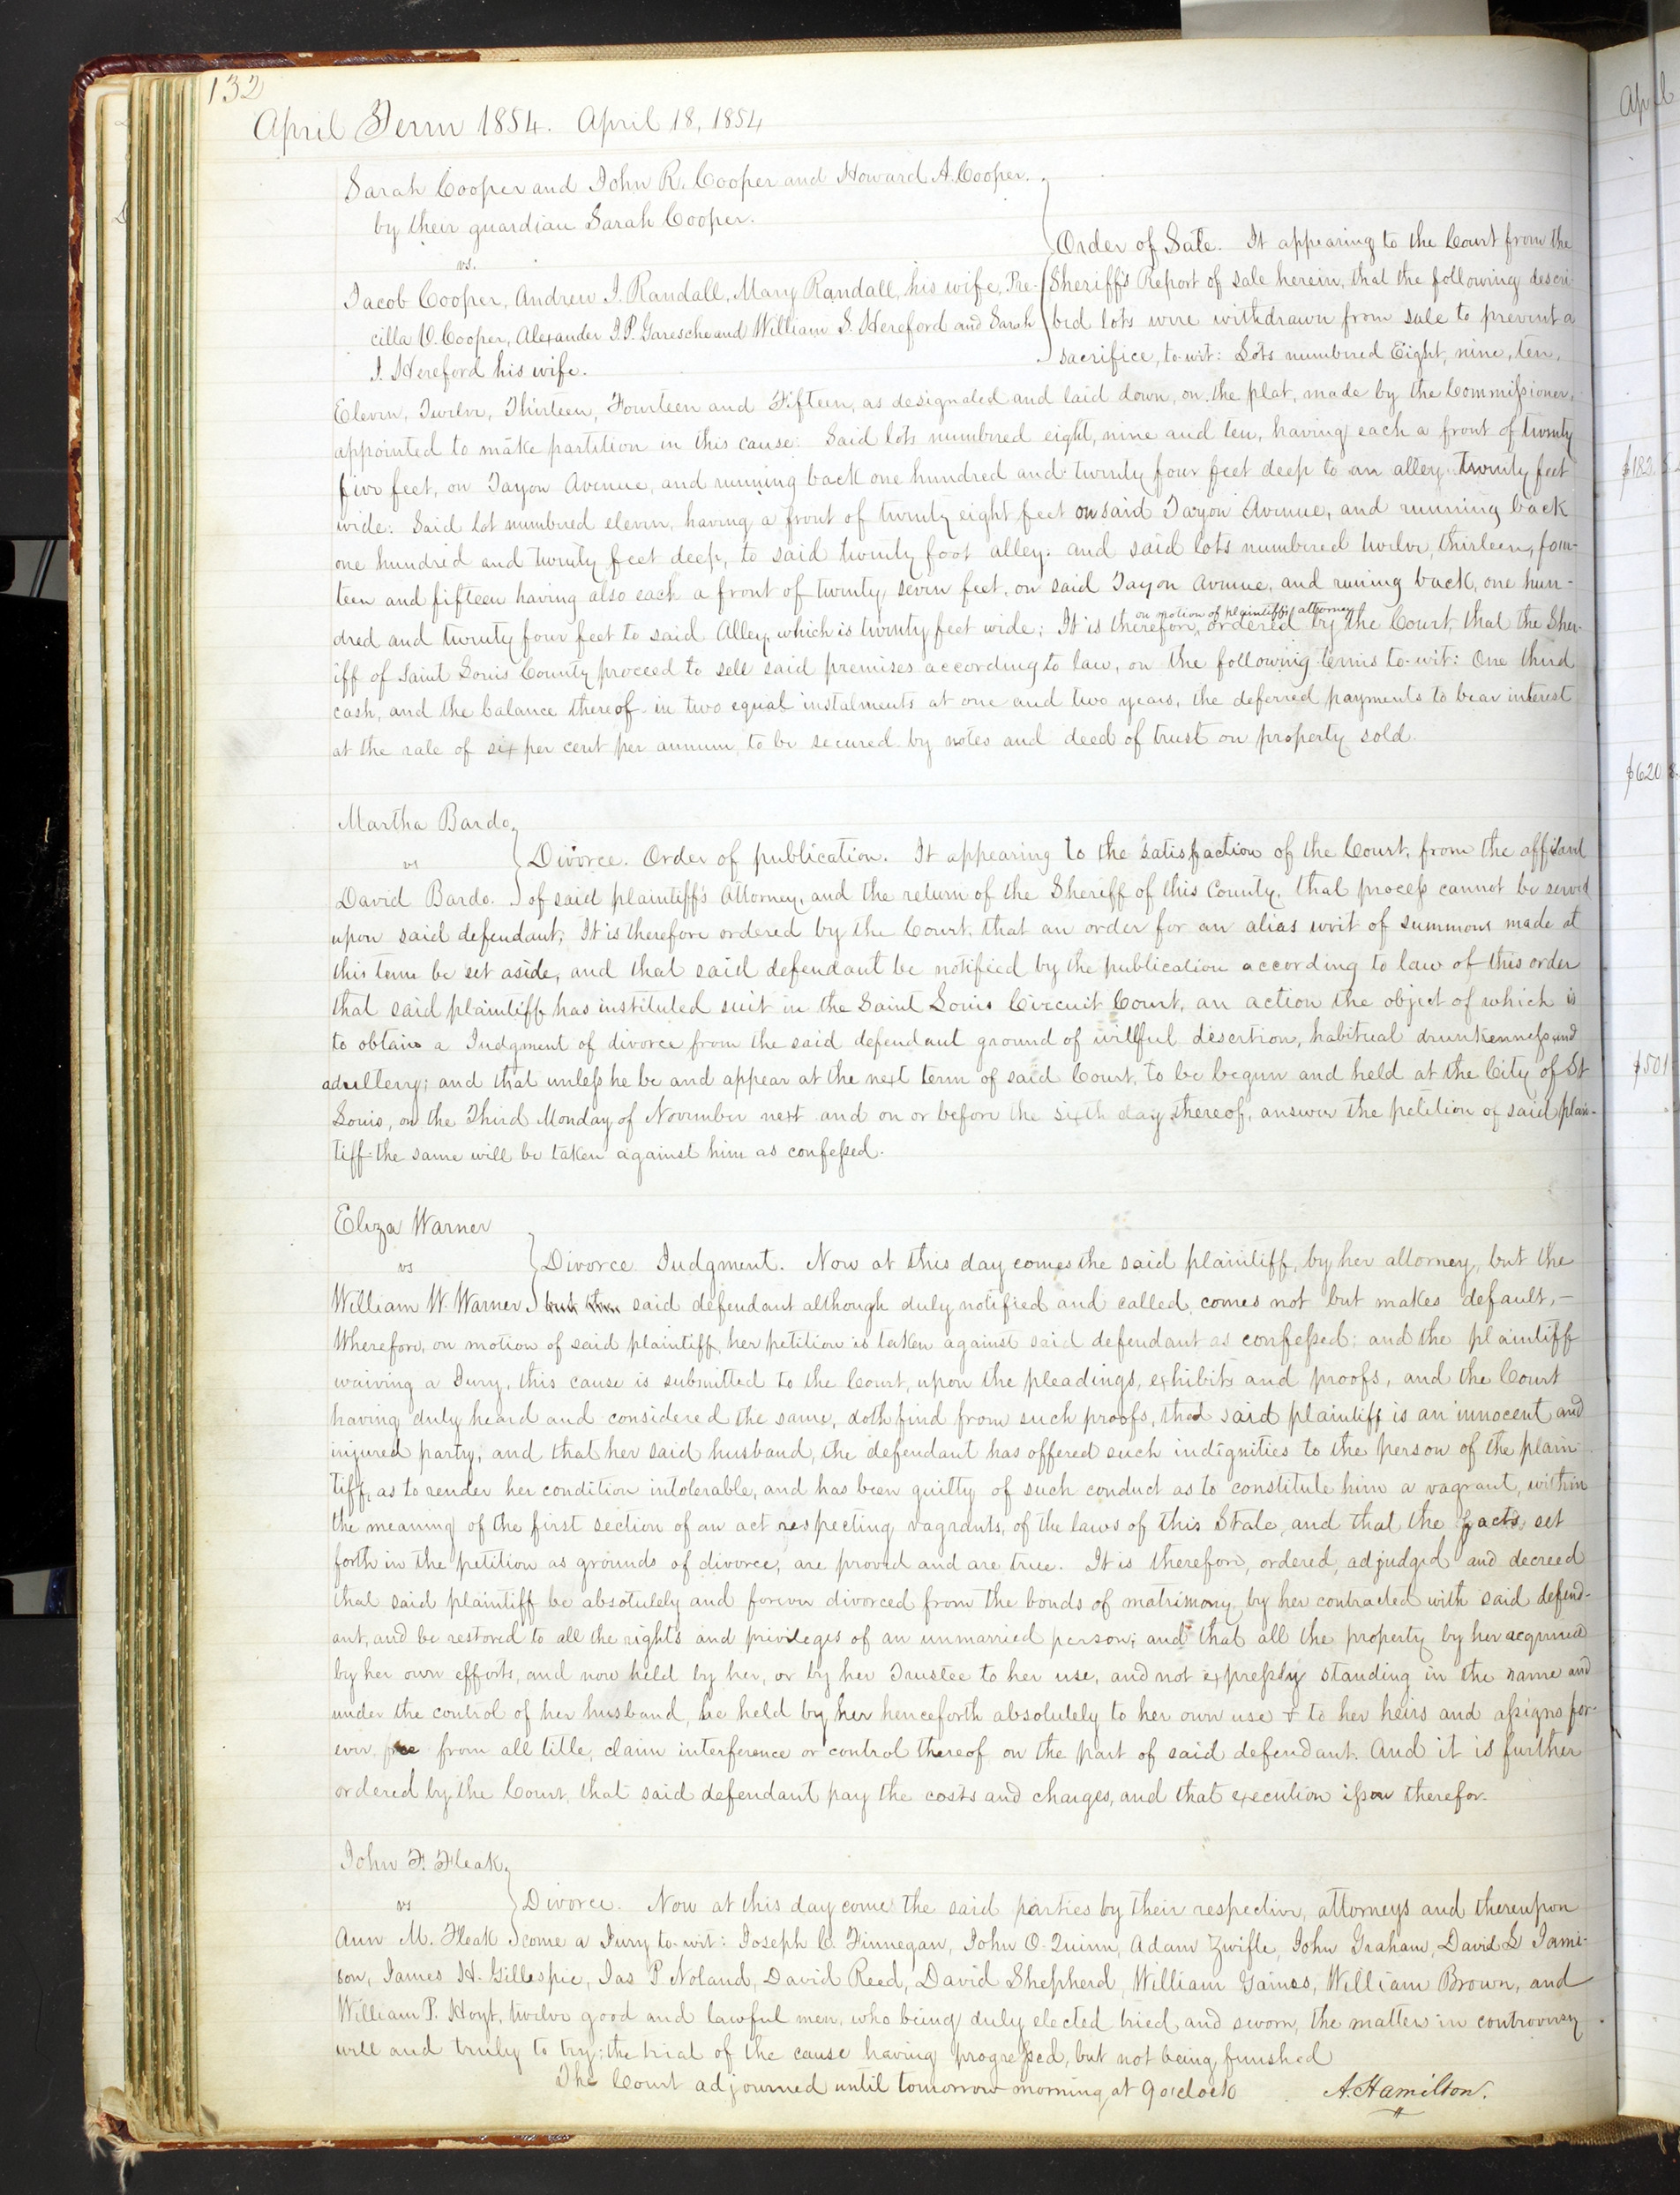 132
April Term 1854. April 18, 1854
Sarah Cooper and John R. Cooper and Howard A. Cooper.
by their guardian Sarah Cooper.
vs.
Jacob Cooper, Andrew J. Randall, Mary Randall, his wife, Pre-
cilla V. Cooper, Alexander J. P. Garesche and William S. Hereford and Sarah
J. Hereford his wife.
Order of Sale. It appearing to the Court from the
Sheriff's Report of sale herein, that the following descri-
bed lots were withdrawn from sale to prevent a
sacrifice, to-wit: Lots numbered Eight, nine, ten,
Eleven, Twelve, Thirteen, Fourteen and Fifteen, as designated and laid down, on the plat, made by the Commissioners,
appointed to make partition in this cause: Said lots numbered eight, nine and ten, having each a front of twenty
five feet, on Tayon Avenue, and running back one hundred and twenty four feet deep to an alley twenty feet
wide: Said lot numbered eleven, having a front of twenty eight feet on said Tayon Avenue, and running back
one hundred and twenty feet deep, to said twenty foot alley: and said lots numbered twelve, thirteen, four-
teen and fifteen having also each a front of twenty seven feet, on said Tayon Avenue, and runing back, one hun-
on motion of plaintiff's attorney
dred and twenty four feet to said Alley, which is twenty feet wide; It is therefore, ordered by the Court, that the Sher-
iff of Saint Louis County proceed to sell said premises according to law, on the following terms to-wit: One third
cash, and the balance thereof in two equal instalments at one and two years, the deferred payments to bear interest
at the rate of six per cent per annum, to be secured by notes and deed of trust on property sold.
Martha Bardo,
vs
David Bardo.
Divorce. Order of publication. It appearing to the satisfaction of the Court, from the affidavit
of said plaintiff's Attorney, and the return of the Sheriff of this County, that process cannot be served
upon said defendant; It is therefore ordered by the Court, that an order for an alias writ of summons made at
this term be set aside, and that said defendant be notified by the publication according to law of this order
that said plaintiff has instituted suit in the Saint Louis Circuit Court, an action the object of which is
to obtain a Judgment of divorce from the said defendant ground of willful desertion, habitual drunkenness and
adultery; and that unless he be and appear at the next term of said Court, to be begun and held at the City of St
Louis, on the Third Monday of November next and on or before the sixth day thereof, answer the petition of said plain-
tiff the same will be taken against him as confessed.
Eliza Warner
vs
William W. Warner
Divorce Judgment. Now at this day comes the said plaintiff, by her attorney, but the
said defendant although duly notified and called, comes not but makes default,-
Wherefore, on motion of said plaintiff, her petition is taken against said defendant as confessed: and the plaintiff
waiving a Jury, this cause is submitted to the Court, upon the pleadings, exhibits and proofs, and the Court
having duly heard and considered the same, doth find from such proofs, that said plaintiff is an innocent and
injured party, and that her said husband, the defendant has offered such indignities to the person of the plain-
tiff, as to render her condition intolerable, and has been guilty of such conduct as to constitute him a vagrant, within
the meaning of the first section of an act respecting vagrants, of the laws of this State, and that the facts set
forth in the petition as grounds of divorce, are proved and are true. It is therefore, ordered, adjudged and decreed
that said plaintiff be absolutely and forever divorced from the bonds of matrimony by her contracted with said defend-
ant, and be restored to all the rights and privileges of an unmarried person; and that all the property by her acquired
by her own efforts, and now held by her, or by her Trustee to her use, and not expressly standing in the name and
under the control of her husband, be held by her henceforth absolutely to her own use & to her heirs and assigns for-
ever, free from all title, claim interference or control thereof on the part of said defendant. And it is further
ordered by the Court, that said defendant pay the costs and charges, and that execution issue therefor.
John F. Fleak,
vs
Ann M. Fleak
Divorce. Now at this day come the said parties by their respective, attorneys and thereupon
come a Jury to-wit: Joseph C. Finnegan, John O. Quinn, Adam Zwifle, John Graham, David L Jami-
son, James H. Gillespie, Jas P. Noland, David Reed, David Shepherd, William Gaines, William Brown, and
William P. Hoyt, twelve good and lawful men, who being duly elected tried and sworn, the matters in controversy
well and truly to try: the trial of the cause having progressed, but not being finished
The Court adjourned until tomorrow morning at 9 o'clock
A. Hamilton.